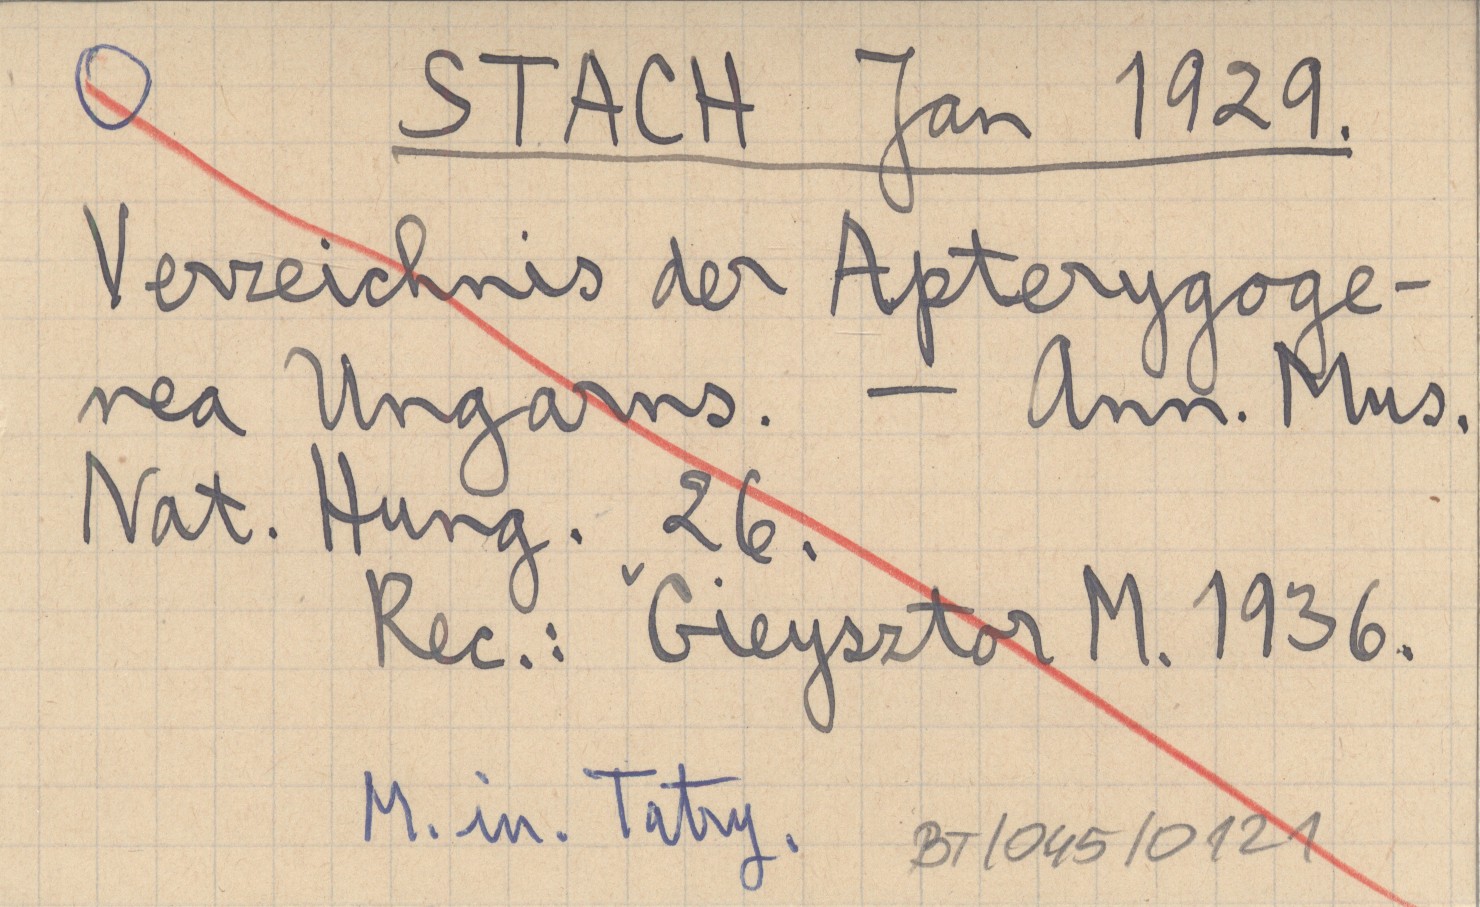 STACH Jan 1929.
Verzeichnis der Apterygoge-
nea Ungarns. — Ann. Mus.
Nat. Hung. 26.
Rec.: Gieysztor M. 1936.
M. in. Tatry.
BT/045/0121